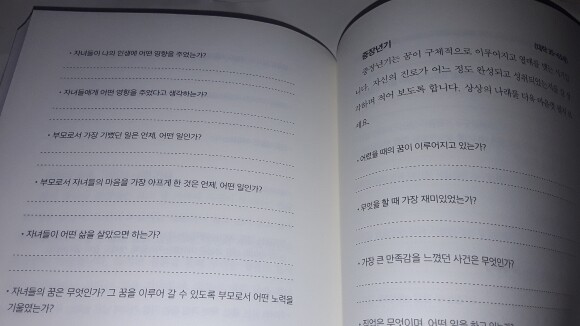 • 자녀들이 나의 인생에 어떤 영향을 주었는가?
• 자녀들에게 어떤 영향을 주었다고 생각하는가?
• 부모로서 가장 기뻤던 일은 언제, 어떤 일인가?
• 부모로서 자녀들의 마음을 가장 아프게 한 것은 언제, 어떤 일인가?
• 자녀들이 어떤 삶을 살았으면 하는가?
• 자녀들의 꿈은 무엇인가? 그 꿈을 이루어 갈 수 있도록 부모로서 어떤 노력을
기울였는가?
중장년기
중장년기는 꿈이 구체적으로 이루어지고 열매를 맺는
니다. 자신의 진로가 어느 정도 완성되고 성취되었는지를
각하며 적어 보도록 합니다. 상상의 나래를 더욱
세요.
• 어렸을 때의 꿈이 이루어지고 있는가?
• 무엇을 할 때 가장 재미있었는가?
• 가장 큰 만족감을 느꼈던 사건은 무엇인가?
• 직업은 무엇이며, 어떤 일을 하고 있는가?